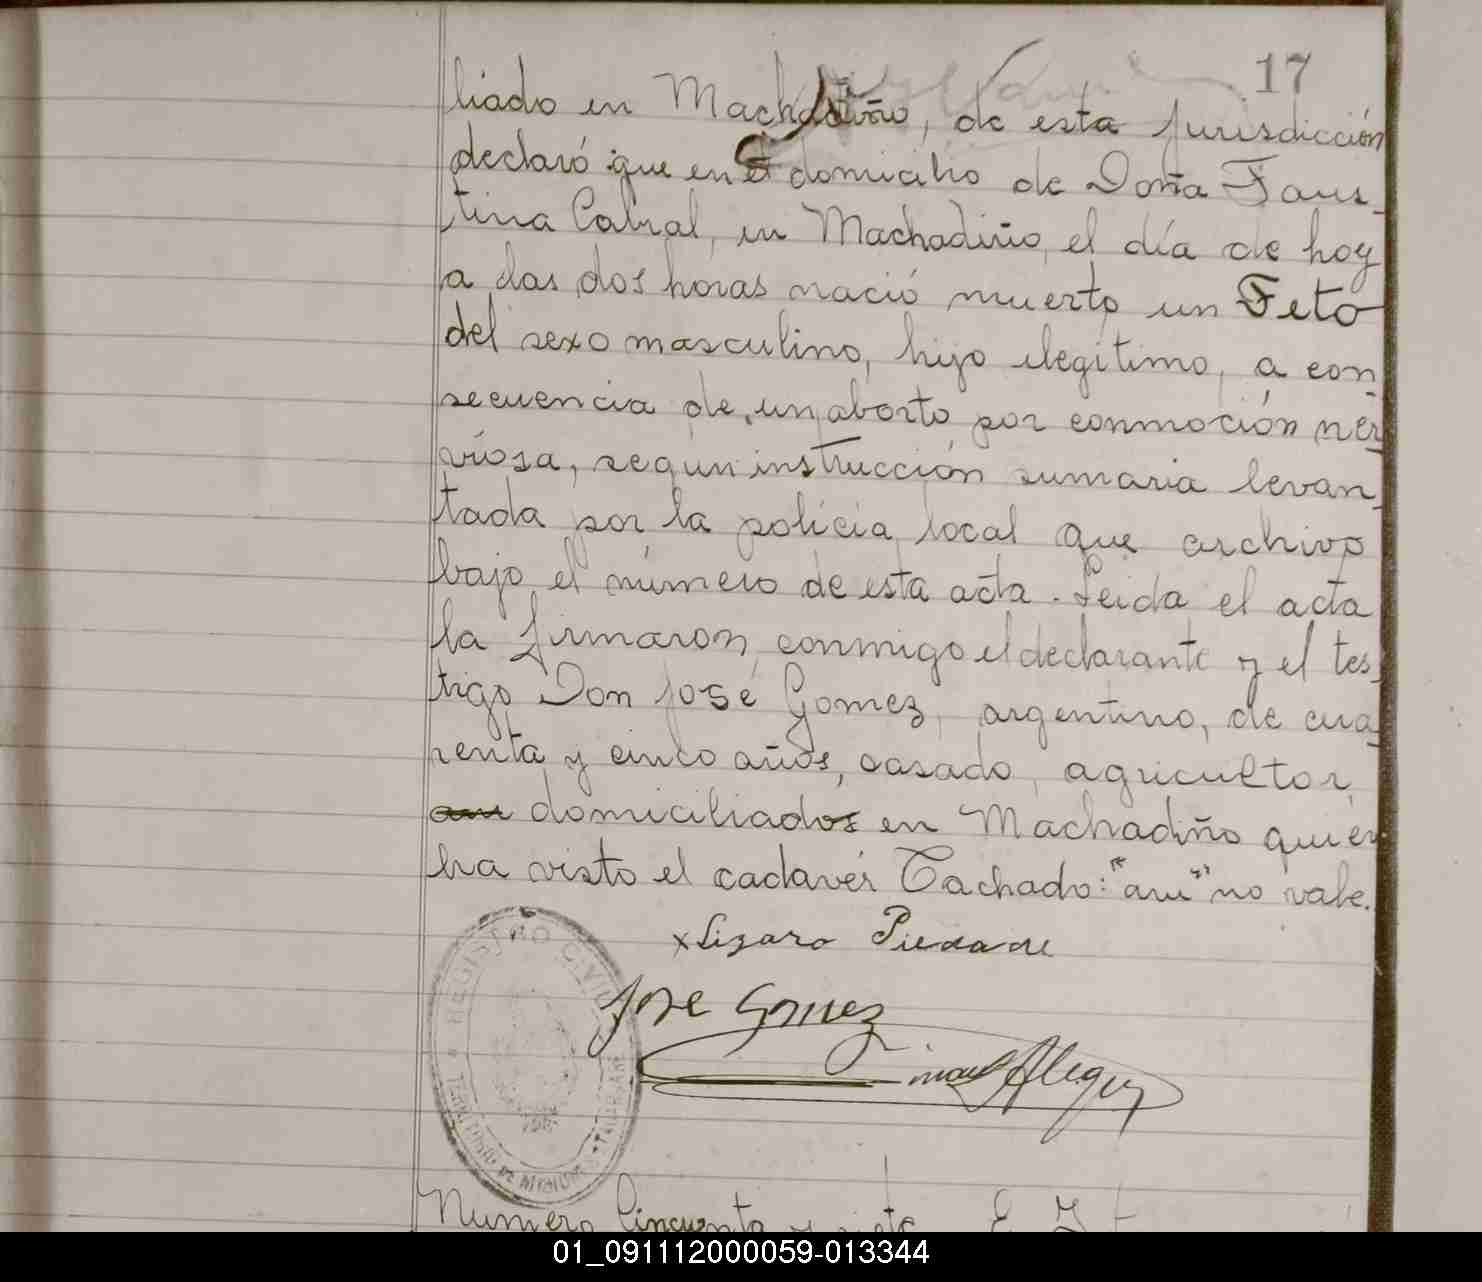 17
liado en Machadiño, de esta jurisdicción
declaró que en el domicilio de Doña Faus-
tina Cabral, en Machadiño, el día de hoy
a las dos horas nació muerto un Feto
del sexo masculino, hijo ilegítimo, a con-
secuencia de un aborto por conmoción ner-
viosa, según instrucción sumaria levan-
tada por la policia local que archivo
bajo el número de esta acta. Leida el acta
la firmaron conmigo el declarante y el tes-
tigo Don José Gomez, argentino, de cua-
renta y cinco años, casado, agricultor,
domiciliados en Machadiño quien
ha visto el cadáver Tachado: "au" no vale.
x Lizaro Piedade
José Gomez
Alegre
REGISTRO CIVIL
TERRITORIO DE MISIONES
Número Cincuenta y siete
01_091112000059-013344